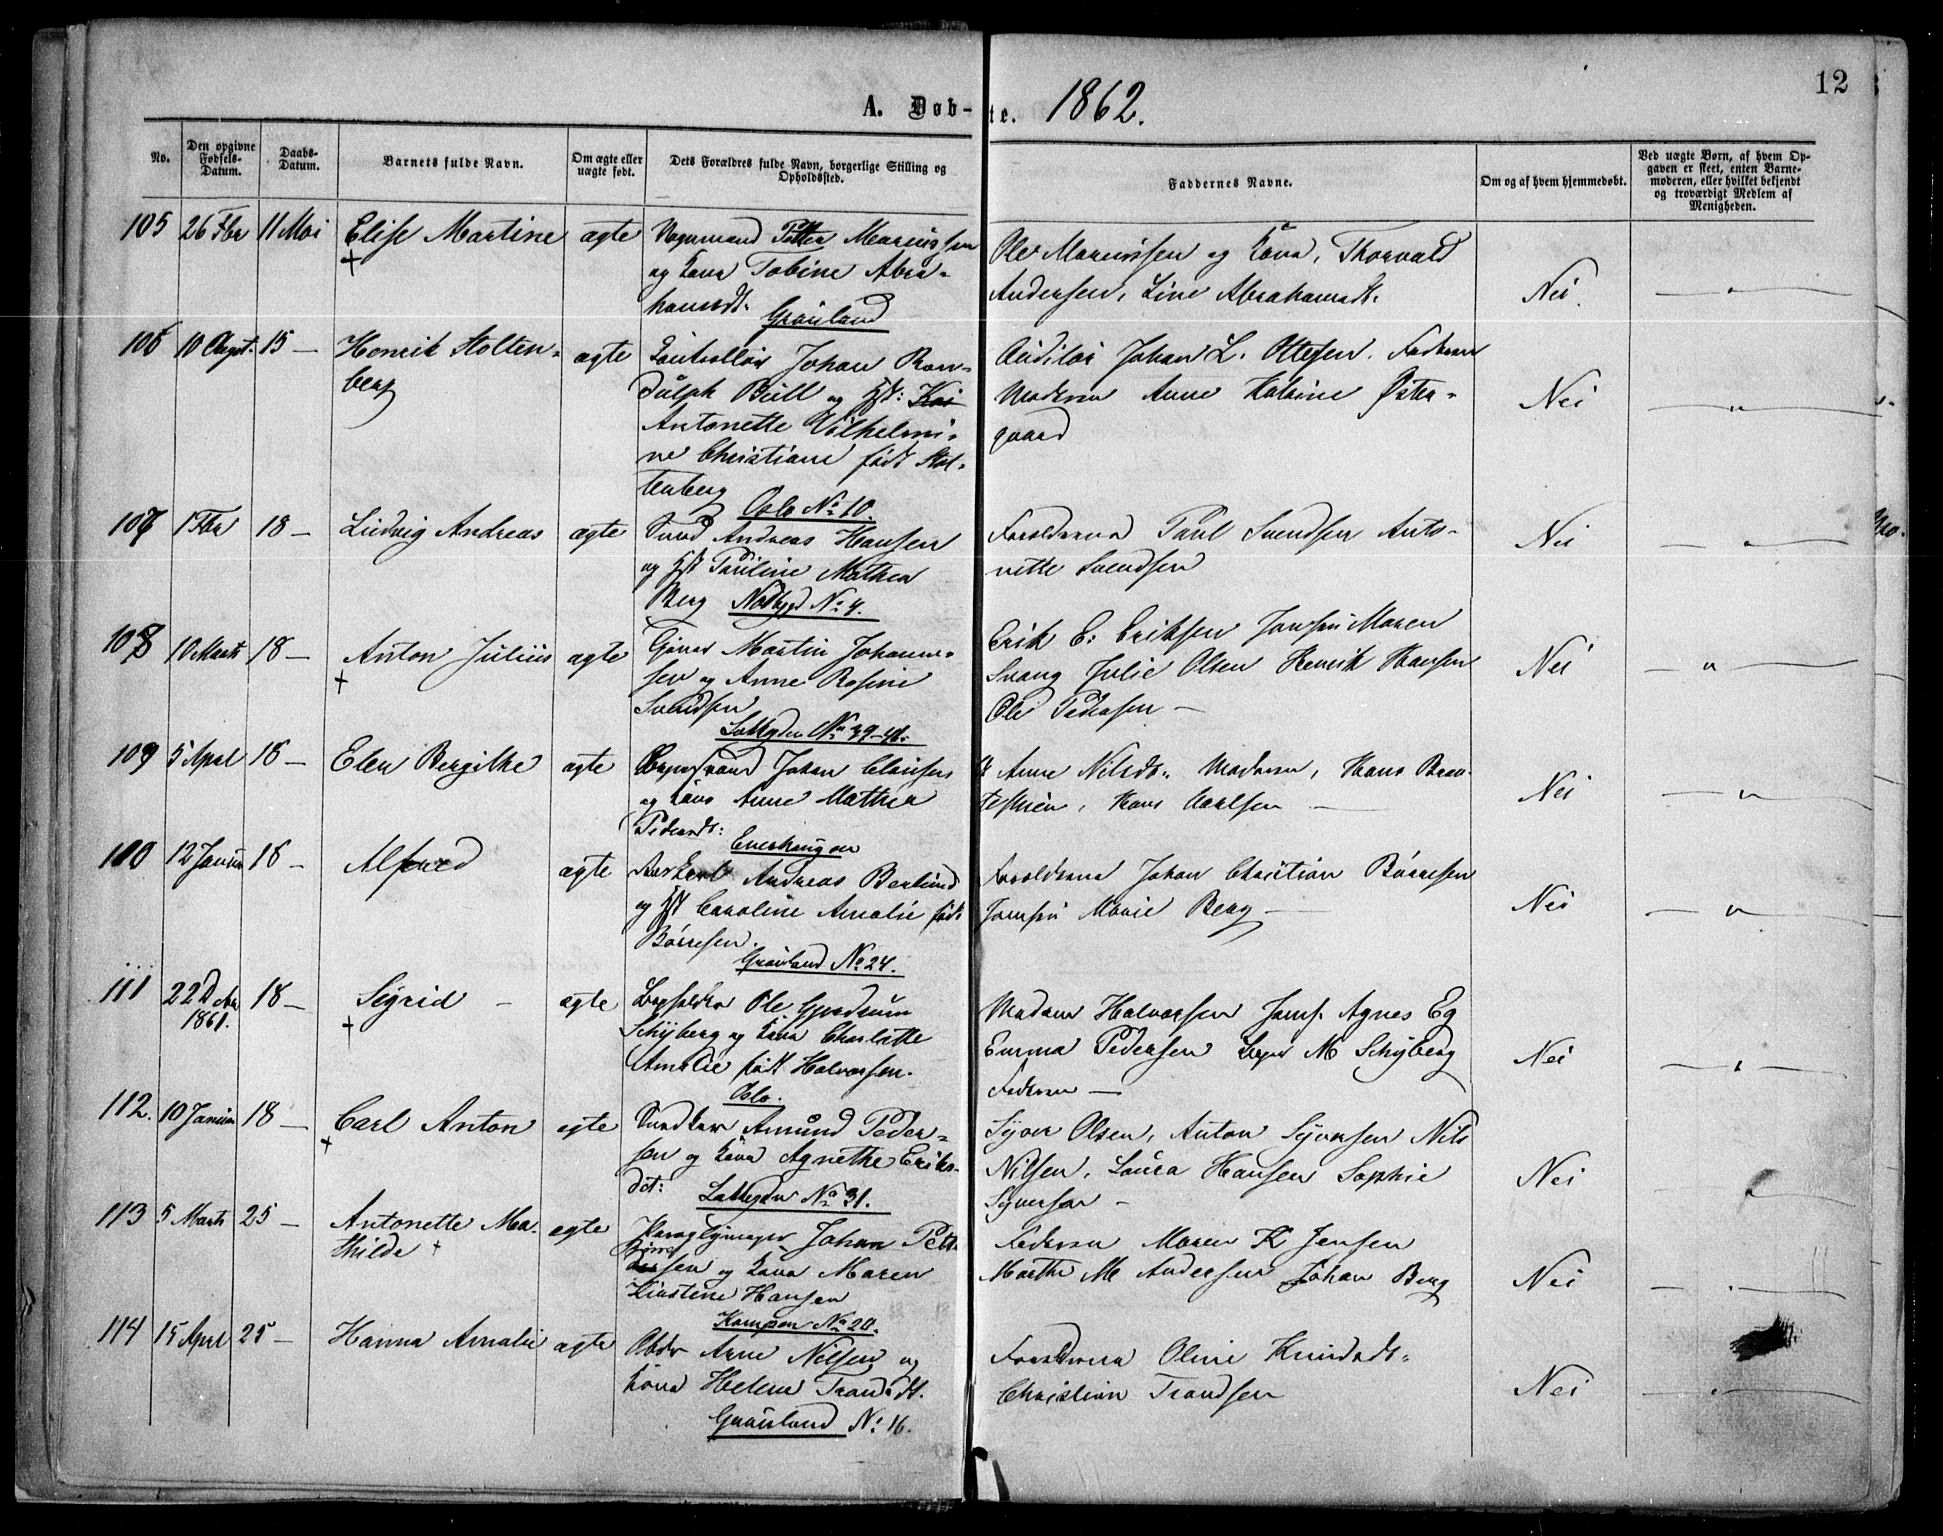 12
A. Døb-te. 1862.
No.
Den opgivne Fødsels-Datum.
Daabs-Datum.
Barnets fulde Navn.
Om ægte eller uægte født.
Dets Forældres fulde Navn, borgerlige Stilling og Opholdssted.
Faddernes Navne.
Om og af hvem hjemmedøbt.
Ved uægte Børn, af hvem Opgaven er skeet, enten Barnemoderen, eller hvilket bekjendt og troværdigt Medlem af Menigheden.
105 26 Fbr 11 Mai Elise Martine ægte Petter Marcussen
og Kona Tobine Abra-
hamsdt. Grønland
Ole Marcussen og Kona, Thorvald
Andersen, Line Abrahamsdt.
Nei
106 10 15 — Henrik Stolten-
berg
ægte Johan Ran-
dulph Bull og Hst:
Antonette Vilhelmi-
ne Christiane født Stol-
tenberg
Oslo No 10.
Auditør Johan L. Ottesen. Faderen
Moderen Anne Katrine Øster-
gaard
Nei
107 1 Fbr 18 — Ludvig Andreas ægte Andreas Hansen
og Hst Pauline Mathea
Berg No 4.
Forældrene Paul Svendsen Anto-
nette Svendsen
Nei
108 10 Marts 18 — Anton Julius ægte Martin Johann-
sen og Anne Rosine
Svendsen
No 39-41.
Erik E. Eriksen Jomfru Maren
Svang Julie Olsen Henrik Hansen
Ole Pedersen —
Nei
109 5 April 18 — Elen Bergithe ægte Johan Clausen
og Kona Anne Mathea
Pedersdt:
Enerhaugen
Anne Nilsdt. Moderen, Hans
Hans Carlsen —
Nei
110 12 Januar 18 — Alfred ægte Andreas Berlund
og Hst Caroline Amalie født
Børresen.
Grønland No 24.
Forældrene Johan Christian Børresen
Jomfru Marie Berg —
Nei
111 22 D
1861. 18 — Sigrid — ægte Ole Gjerdrum
Schyberg og Kona Charlotte
Amalie født Halvorsen.
Oslo.
Madam Halvorsen Jomf. Agnes Eg
Emma Pedersen M Schyberg
Faderen —
Nei
112. 10 Januar 18 — Carl Anton ægte Amund Peder-
sen og Kona Agnethe Eriks-
dt:
No 31.
Syver Olsen, Anton Syversen Nils
Nilsen, Laura Hansen Sophie
Syversen —
Nei
113 5 Marts 25 — Antonette Ma-
thilde
ægte Johan
og Kona Maren
Kirstine Hansen
Kampen No 20.
Faderen Maren K Jensen
Marthe M Andersen Johan Berg
Nei
114 15 April 25 — Hanna Amalie ægte Arne Nilsen og
Kona Helene Trondsdt.
Grønland No 16.
Forældrene Oline Knudsdt.
Christian Trondsen
Nei